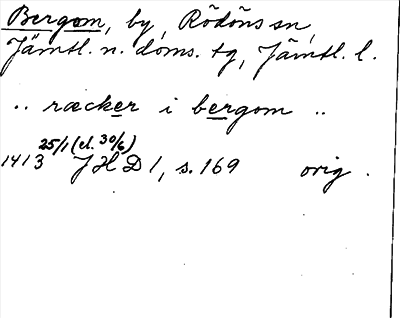 Bergom, by, Rödöns sn,
Jämtl. n. doms. tg, Jämtl. l.
.. ræcker i bergom ..
25/1 (el. 30/6)
1413 JHD 1, s. 169 orig.